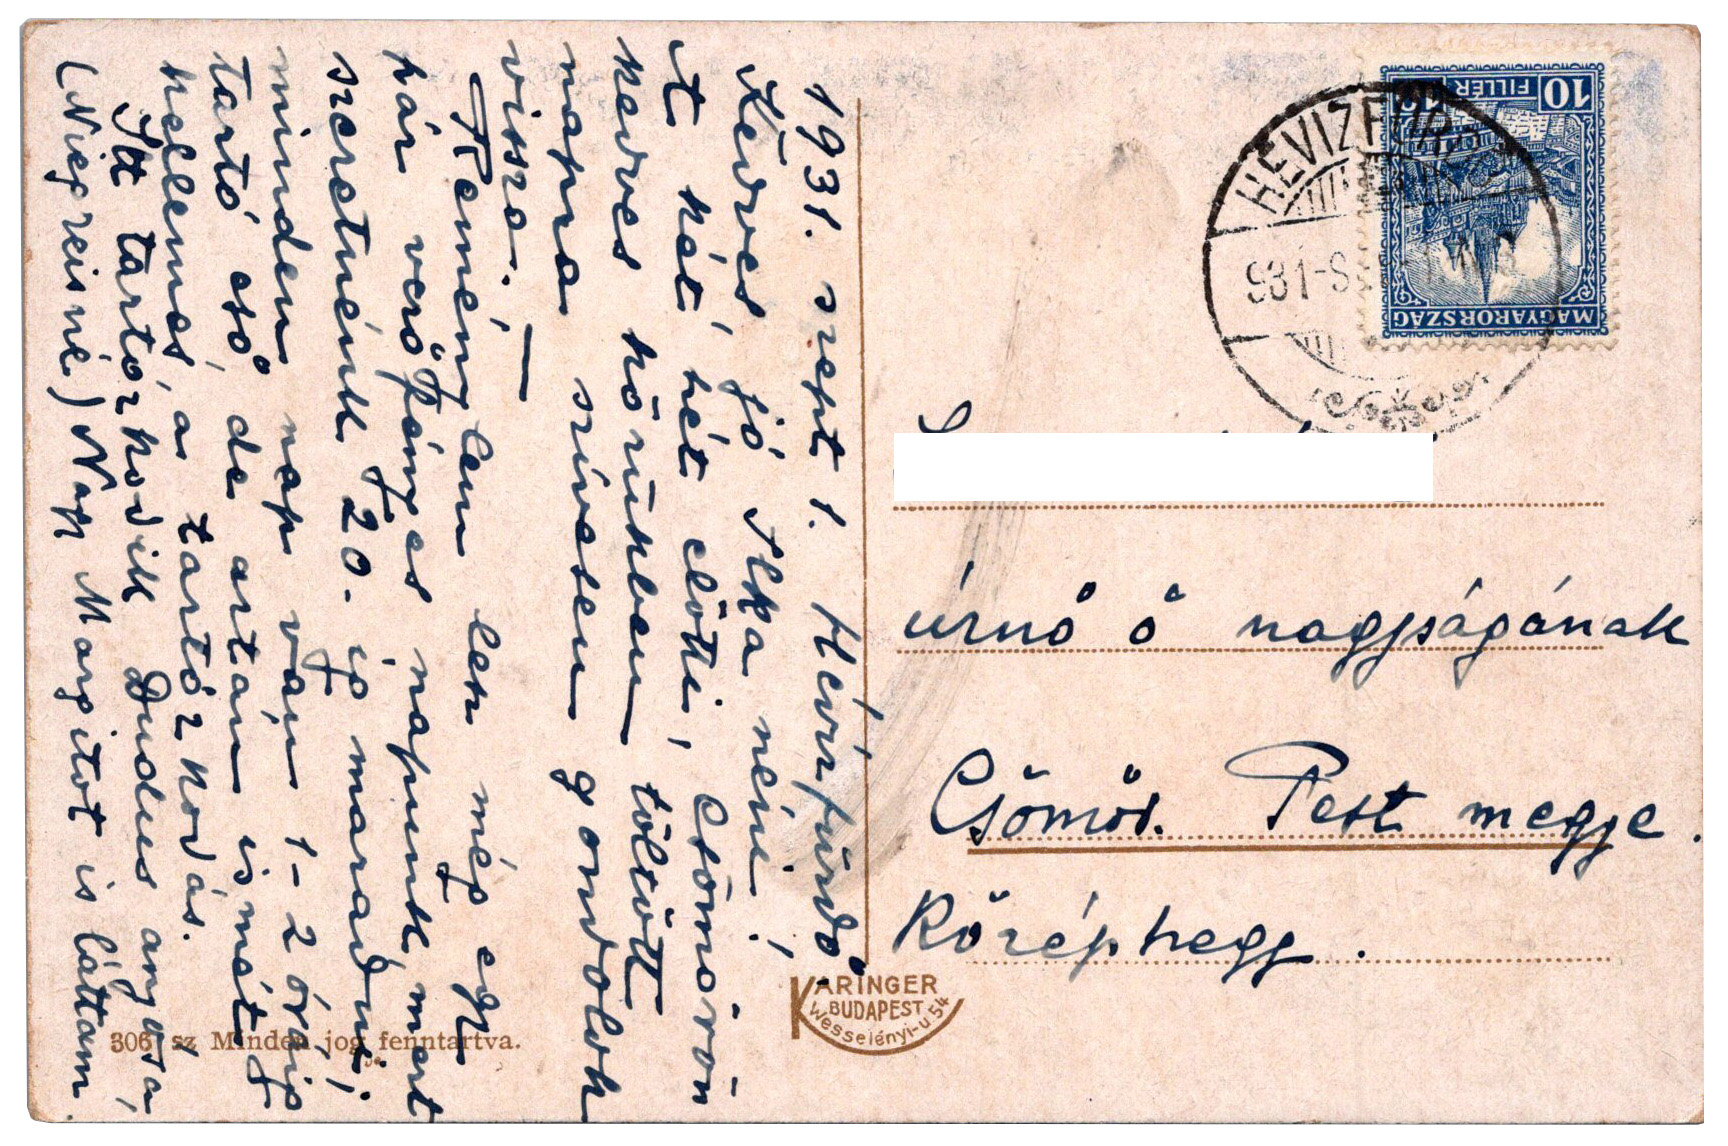 1931. szept 1. Hévízfürdő
Kedves jó Ilka néni!
A két hét előtti, Csömörön
kedves körükben töltött
napra szívesen gondolok
vissza. —
Reménylem lesz még egy
pár verőfényes napunk mert
szeretnénk 20.-ig maradni,
minden nap van 1-2 óráig
tartó eső, de aztán ismét
kellemes a tartózkodás.
Itt tartózkodik Dudus anyósa,
(Niegreisné) Nagy Margitot is láttam.
306 sz Minden jog fenntartva.
KARINGER
BUDAPEST
Wesselényi-u. 54
10 FILLÉR 10
MAGYARORSZÁG
HÉVIZFÜRDŐ
931-S
úrnő ő nagyságának
Csömör. Pest megye.
Középhegy.